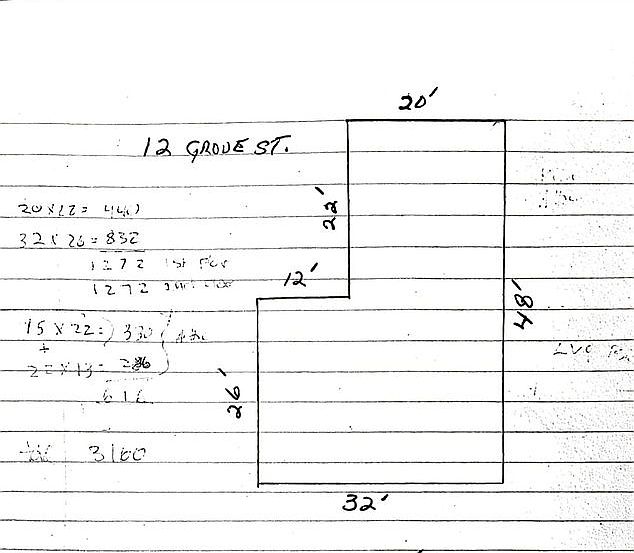 20'
12 GROVE ST.
22'
20 x 22 = 440
32 x 26 = 832
1272 1st Flr
1272
12'
48'
15 x 22 = 330
+
22 x 13 = 286
616
26'
3160
32'